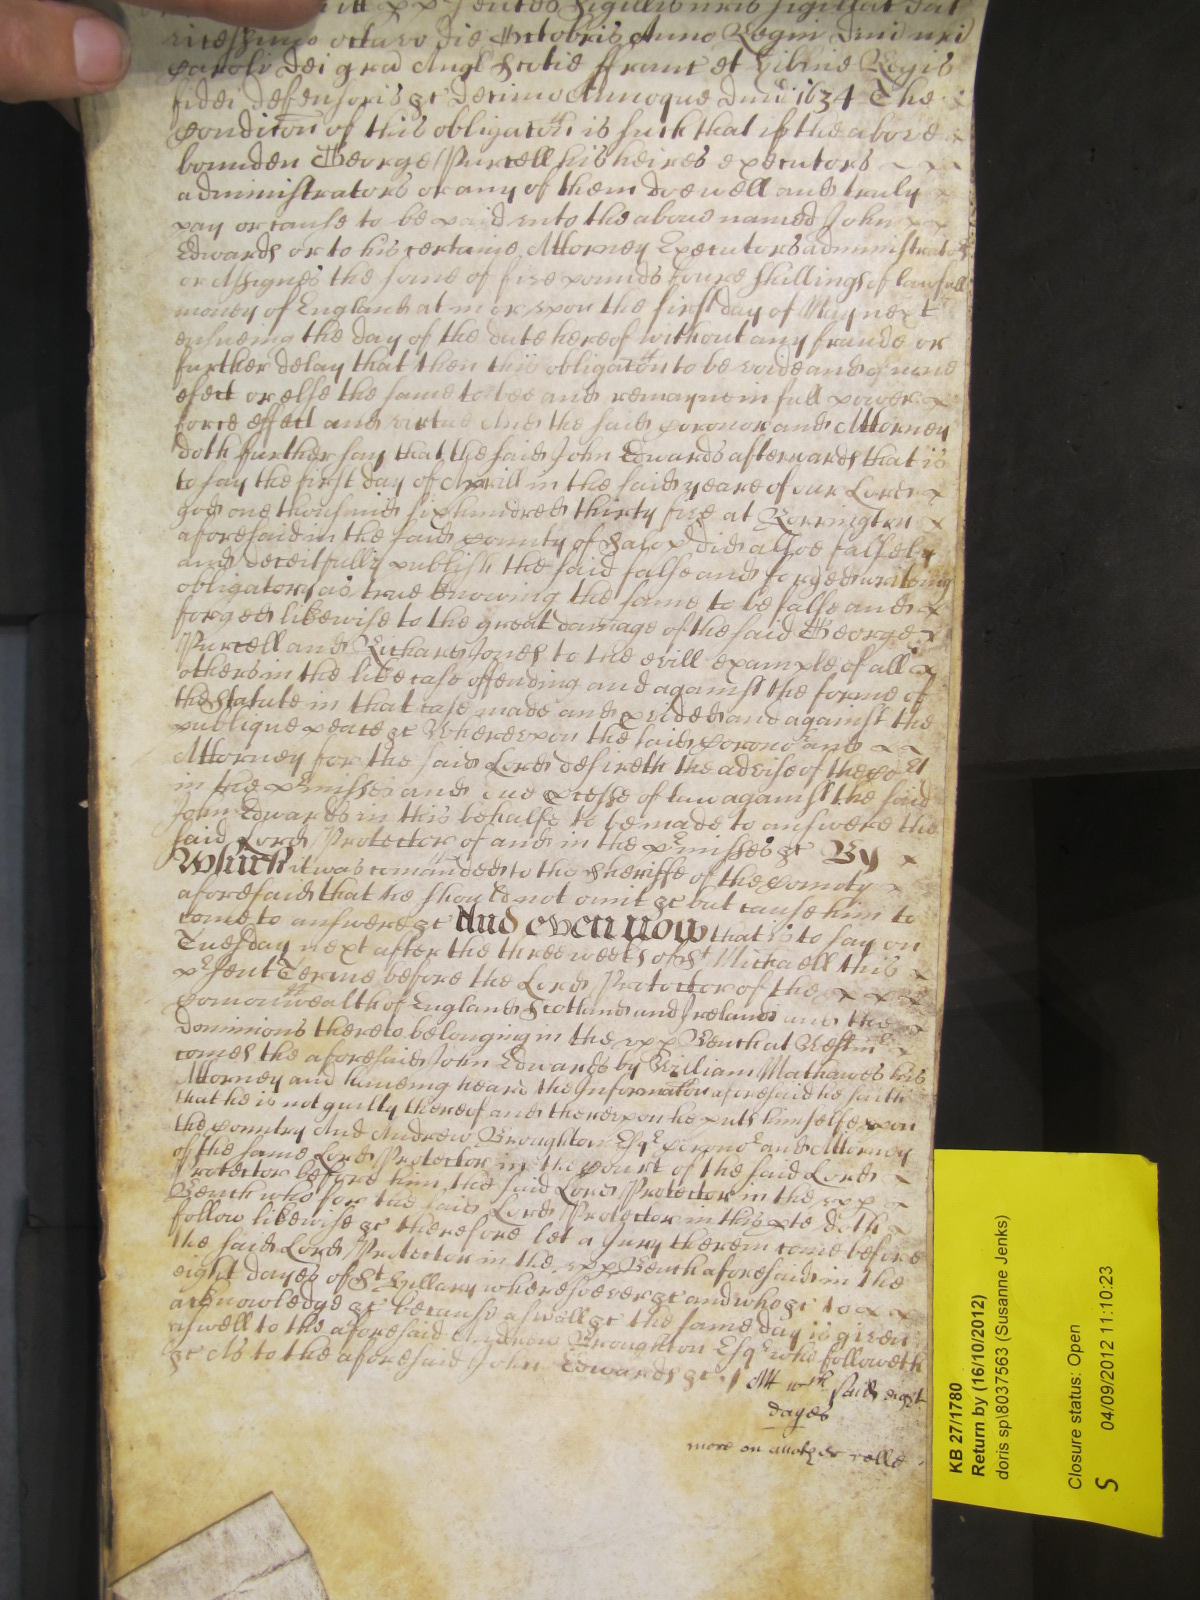 sigillis nris sigillat dat
vicesimo octavo die Octobris Anno Regni Dni nri
Caroli dei gra Angl Scotie ffranc et Hibnie Regis
fidei defensoris &c Decimo Annoque Dmi 1634 The
Condicon of this obligacon is such that if the above
bounden George Purcell his heires executors
administrators or any of them doe well and truly
pay or cause to be paid unto the above named John
Edwards or to his certaine Attorney Executors administrators
or Assignes the some of five pounds foure shillings of lawfull
money of England at in or upon the first day of May next
ensueing the day of the date hereof without any fraude or
further delay that then this obligacon to be voide and of none
efect or else the same to bee and remayne in full power
force effect and virtue And the said Coronor and Attorney
doth further say that the said John Edwards afterwards that is
to say the first day of Aprill in the said yeare of our Lord
god one thousand six hundred thirty five at Rorrington
aforesaid in the said County of Salop did alsoe falsely
and deceitfully publish the said false and forged writeing
obligatory as true knowing the same to be false and
forged likewise to the great damage of the said George
Purcell and Richard Jones to the evill example of all
others in the like case offending and against the forme of
the Statute in that case made and pvided and against the
publique peace &c Whereupon the said Corono^r and
Attorney for the said Lord desireth the advise of the Co^rt
in the p^rmisses and due pcesse of law against the said
John Edwards in this behalfe to be made to answere the
said Lord Protector of and in the p^rmisses &c By
Which it was comanded to the Sheriffe of the County
aforesaid that he should not omit &c but cause him to
come to answere &c And even now that is to say on
Tuesday next after the three weeks of S^t Michaell this
p^rsent Terme before the Lord Protector of the
Comonwealth of England Scotland and Ireland and the
dominions thereto belonging in the upp Bench at Westm^r
comes the aforesaid John Edwards by William Mathawes his
Attorney and haueing heard the Informacon aforesaid he saith
that he is not guilty thereof and thereupon he puts himselfe upon
the Country And Andrew Broughton Esq^r Corono^r and Attorney
of the same Lord Protector in the Court of the said Lord
Protector before him the said Lord Protector in the upp
Bench who for the said Lord Protector in this pte doth
follow likewise &c therefore let a Jury therein come before
the said Lord Protector in the upp Bench aforesaid in the
eight dayes of S^t Hillary wheresoever &c and who &c to
acknowledge &c because aswell &c the same day is given
aswell to the aforesaid Andrew Broughton Esq^r who followeth
&c As to the aforesaid John Edwards &c Att w^ch said eight
dayes
more on another rolle
KB 27/1780
Return by (16/10/2012)
doris sp\8037563 (Susanne Jenks)
Closure status: Open
04/09/2012 11:10:23
S